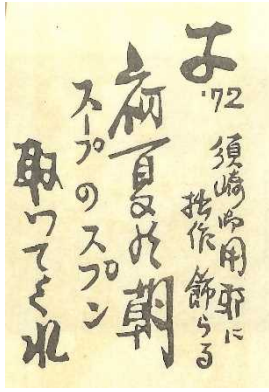 '72
須崎御用邸に
拙作飾らる
初夏の朝
スープのスプン
取つてくれ